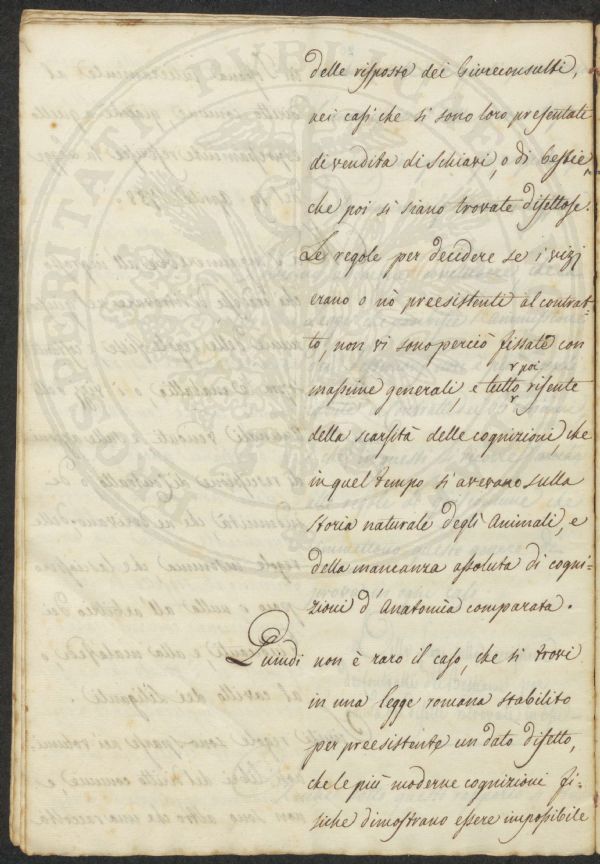 delle risposte dei Giureconsulti,
nei casi che si sono loro presentati
di vendita di Schiavi, o di bestie,
che poi si siano trovate difettose.
Le regole per decidere se i vizj
erano o nò preesistente al contrat-
to, non vi sono perciò fissate con
massime generali, e tutto poi risente
della scarsità delle cognizioni, che
in quel tempo si avevano sulla
storia naturale degli Animali, e
della mancanza assoluta di cogni-
zioni d'Anatomìa comparata.
Quindi non è raro il caso, che si trovi
in una legge romana stabilito
per preesistente un dato difetto,
che le più moderne cognizioni fi-
siche dimostrano essere impossibile